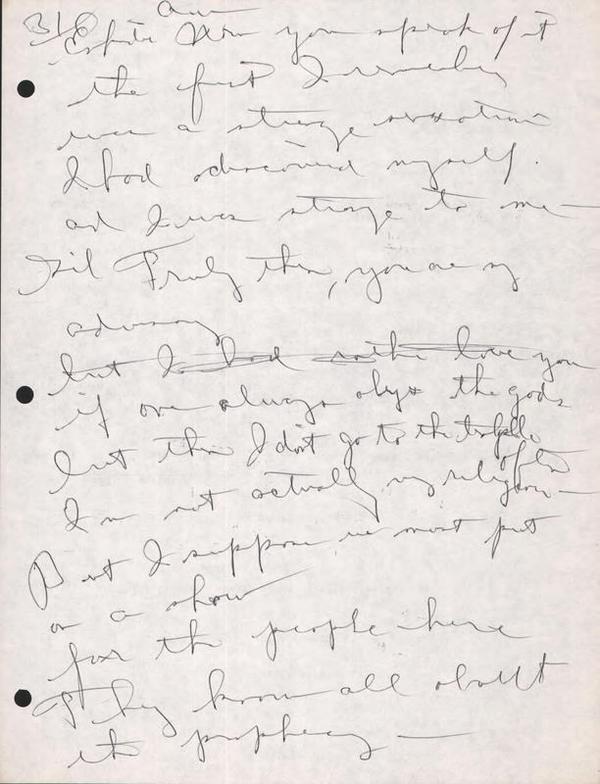 you speak of it
the first I remember
was a strange sensation
I had discovered myself.
and I was strange to me —
Gil Truly then, you are my
adversary
but I had rather love you
if one always obeys the gods
but then I don't go to the temple
often
I'm not actually very religious —
But I suppose we must put
on a show
for the people here
They know all about
the prophecy —